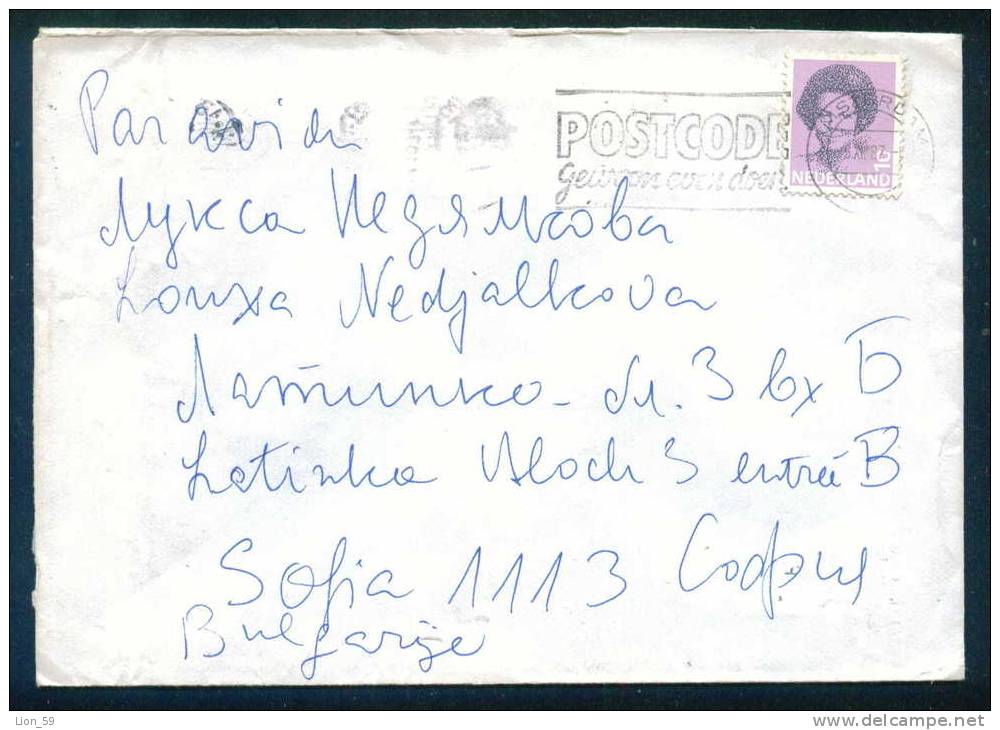 Par avion
POSTCODE
Gewoon even doen
NEDERLAND 1G
Лукса Недялкова
Louxa Nedjalkova
Латинка - бл. 3 вх Б
Latinka Block 3 entreé B
Sofia 1113 София
Bulgarije
Lion_59
http://www.delcampe.net